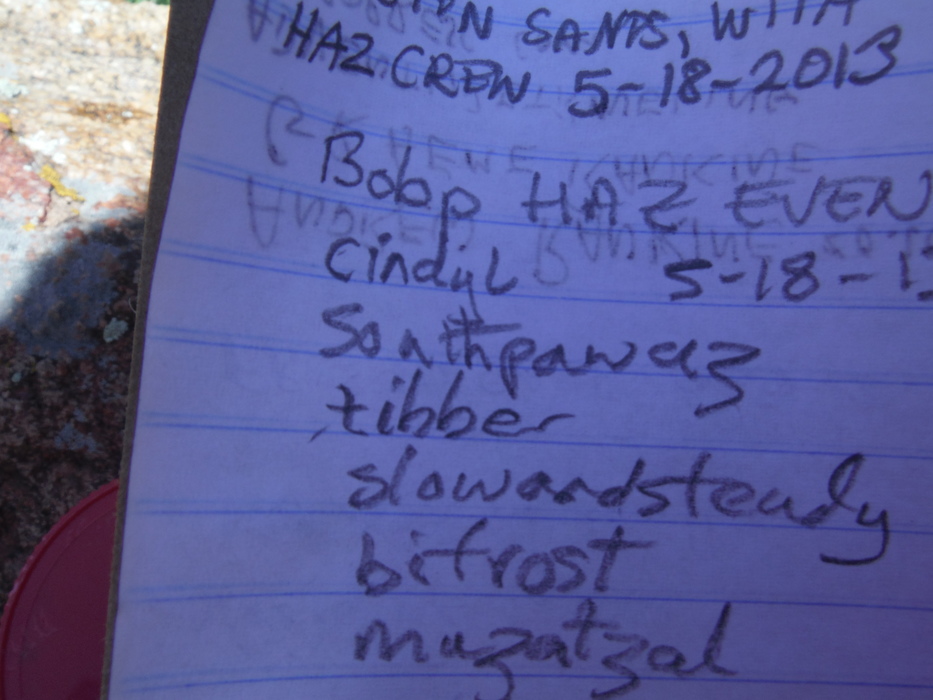 SANTS, WITH
HAZ CREW 5-18-2013
Bobp HAZ EVEN
CindyL 5-18-13
Southpawaz
tibber
slowandsteady
bifrost
mazatzal